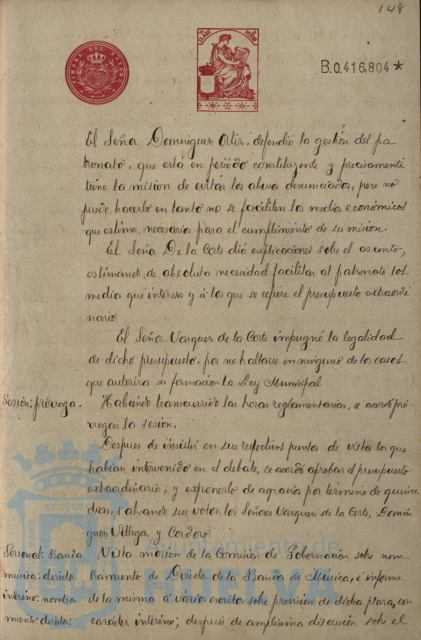 148
B.0.416.804*
El Señor Dominguez Ortiz, defendió la gestión del pa
tronato, que está en período constituyente y precisamente
tiene la misión de evitar los abusos denunciados, pero no
puede hacerlo en tanto no se faciliten los medios económicos
que estima, necesarios para el cumplimiento de su misión.
El Señor De la Corte dió explicaciones sobre el asunto,
estimando de absoluta necesidad facilitar al patronato los
medios que interesa y á los que se refiere el presupuesto extraordi
nario.
El Señor Vazquez de la Corte impugnó la legalidad
de dicho presupuesto, por no hallarse en ninguno de los casos
que autoriza su formación la Ley Municipal
Sesión: prórroga.
Habiendo transcurrido las horas reglamentarias, se acordó pró-
rrogar la sesión.
Despues de insistir en sus respectivos puntos de vista los que
habían intervenido en el debate, se acordó aprobar el presupuesto
extraordinario; y exponerlo de agravios por término de quince
dias, salvando sus votos los Señores Vazquez de la Corte, Domin
guez Villega, y Cordero.
Personal: Banda
música: director
interino: nombra
miento:
Vista moción de la Comisión de Gobernación sobre nom
bramiento de Director de la Banda de Música, é informe
de la misma á varios escritos sobre provisión de dicha plaza, con
carácter interino; después de amplísima discusión sobre el
Ayuntamiento de